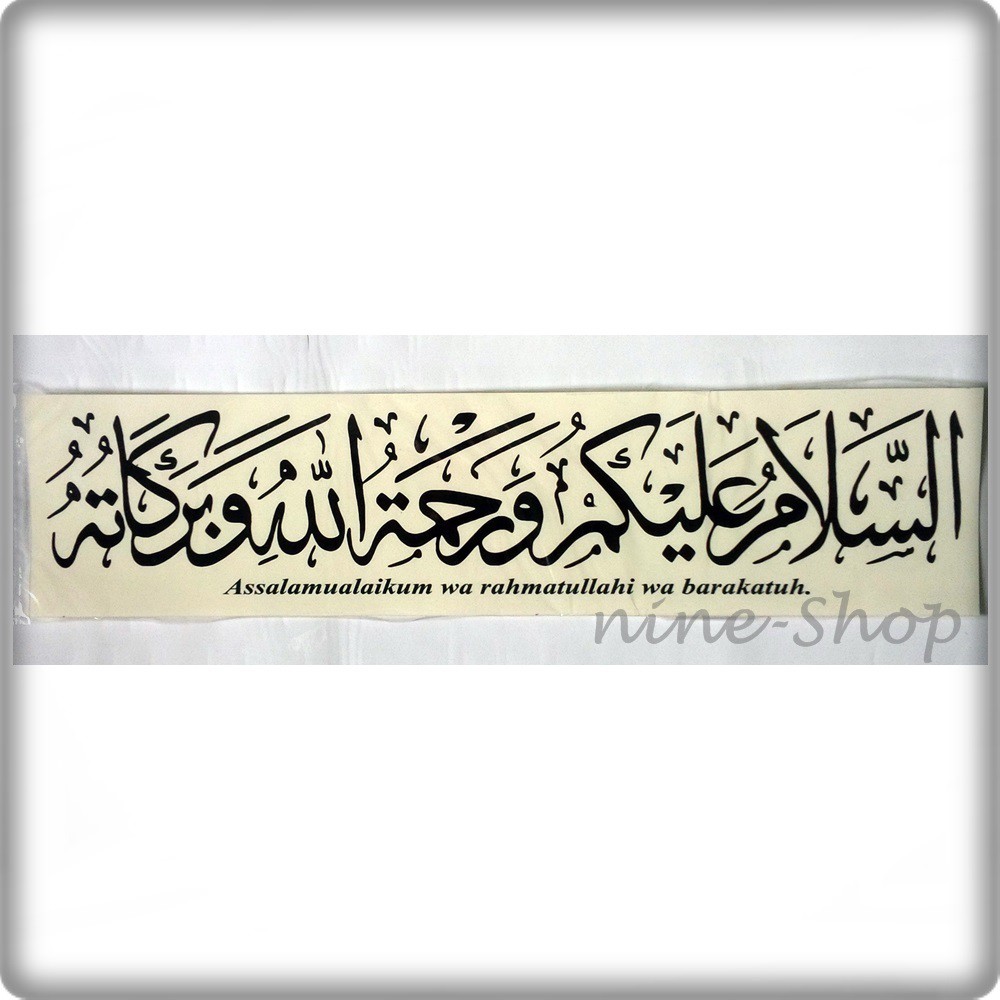 السَّلَامُ عَلَيْكُمْ وَرَحْمَةُ اللهِ وَبَرَكَاتُهُ
Assalamualaikum wa rahmatullahi wa barakatuh.
nine-Shop